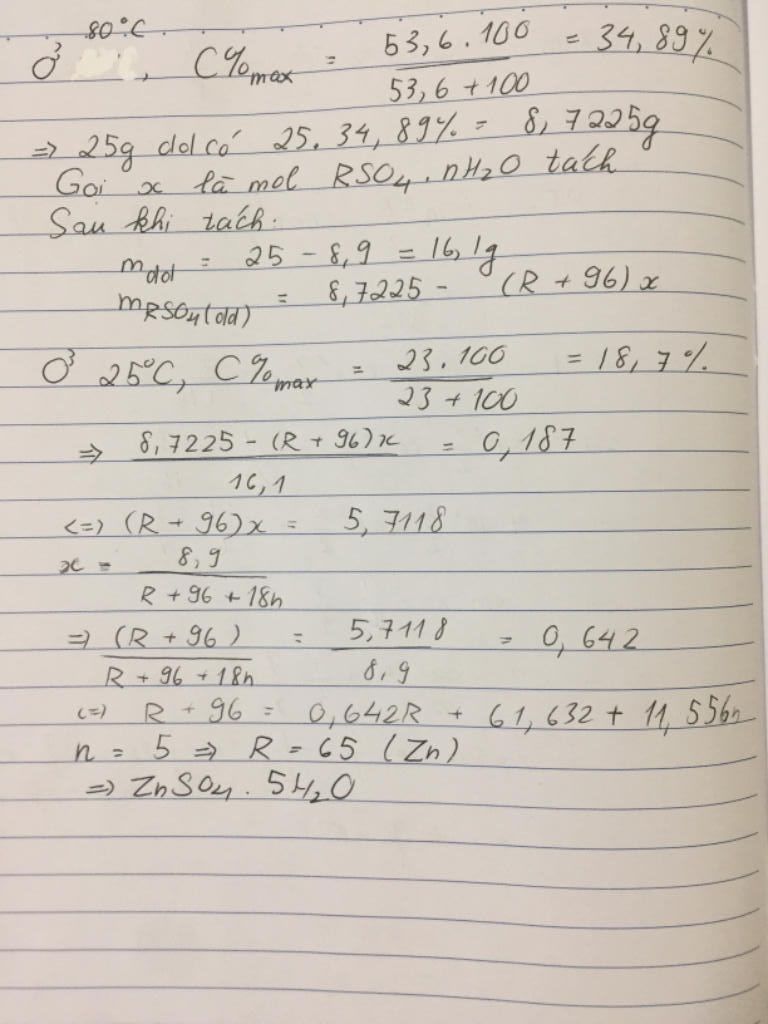 Ở 80°C, C%max = 53,6.100 / 53,6+100 = 34,89%
=> 25g dd có 25.34,89% = 8,7225g
Gọi x là mol RSO4.nH2O tách
Sau khi tách:
mdd = 25 - 8,9 = 16,1g
mRSO4(dd) = 8,7225 - (R + 96)x
Ở 25°C, C%max = 23.100 / 23+100 = 18,7%
=> 8,7225 - (R + 96)x / 16,1 = 0,187
<=> (R + 96)x = 5,7118
x = 8,9 / R + 96 + 18n
=> (R + 96) / R + 96 + 18n = 5,7118 / 8,9 = 0,642
<=> R + 96 = 0,642R + 61,632 + 11,556n
n = 5 => R = 65 (Zn)
=> ZnSO4.5H2O